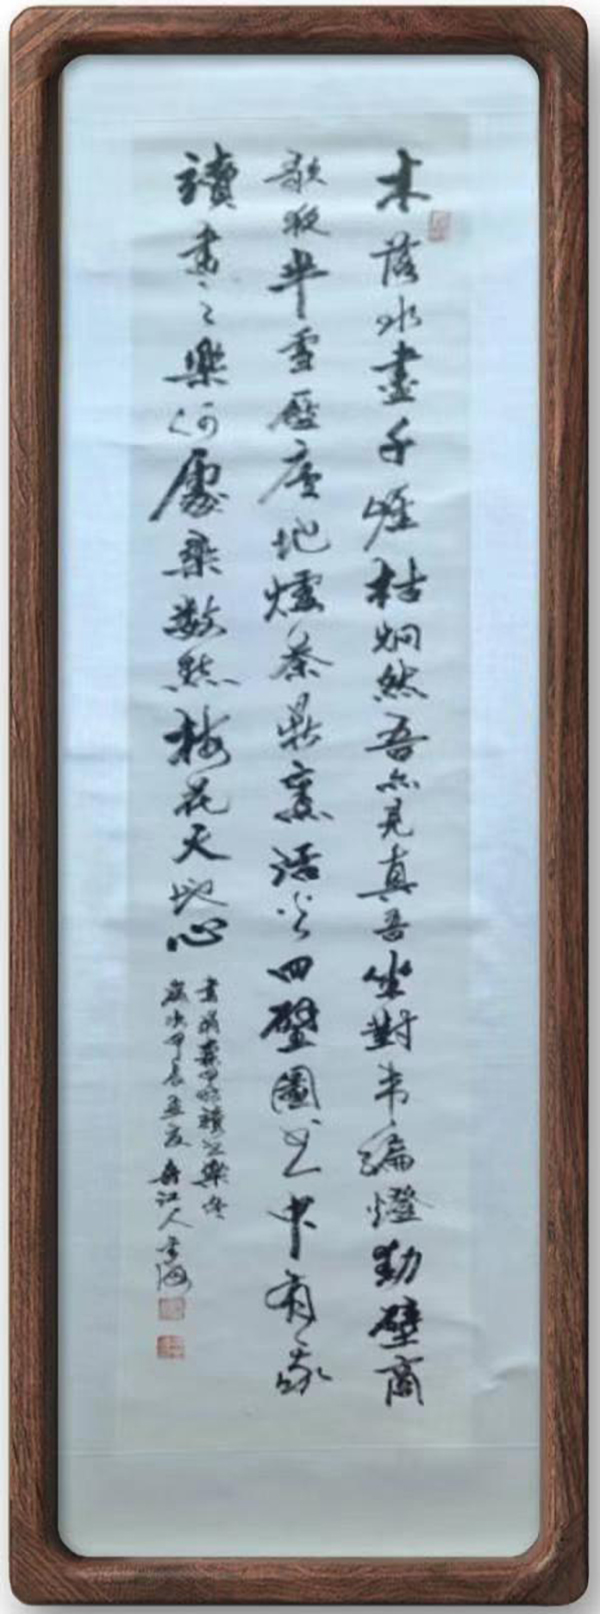 木落水盡千崖枯炯然吾亦見真吾坐對韦編燈動壁高
歌夜半雪壓廬地爐茶鼎烹活火四壁圖書中有我
讀書之樂何處尋數點梅花天地心
書翁森四時讀書樂冬
歲次甲辰孟夏江人